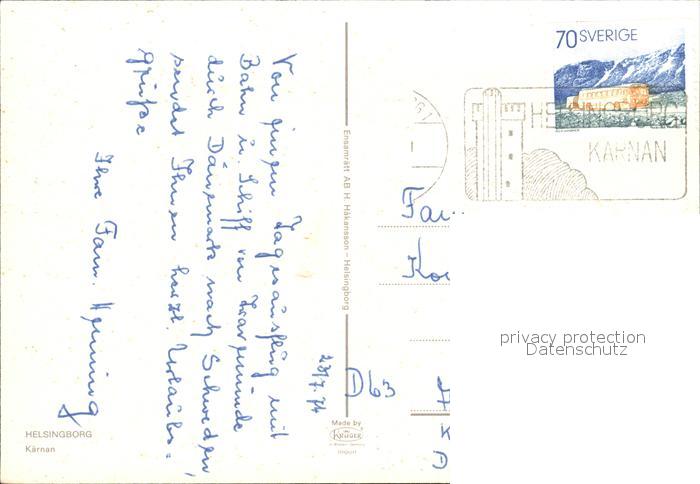 Von einem Tagesausflug mit
Bahn u. Schiff von Warnemünde
durch Dänemark nach Schweden,
sendet Ihnen herzl. Urlaubs=
grüße
Ihre Fam. Henning
23/7.74
HELSINGBORG
Kärnan
Ensamrätt AB H. Håkansson – Helsingborg
Made by
KRÜGER
Import
70 SVERIGE
HELSINGBORG
KÄRNAN
Fa
Ko
D 63
privacy protection
Datenschutz